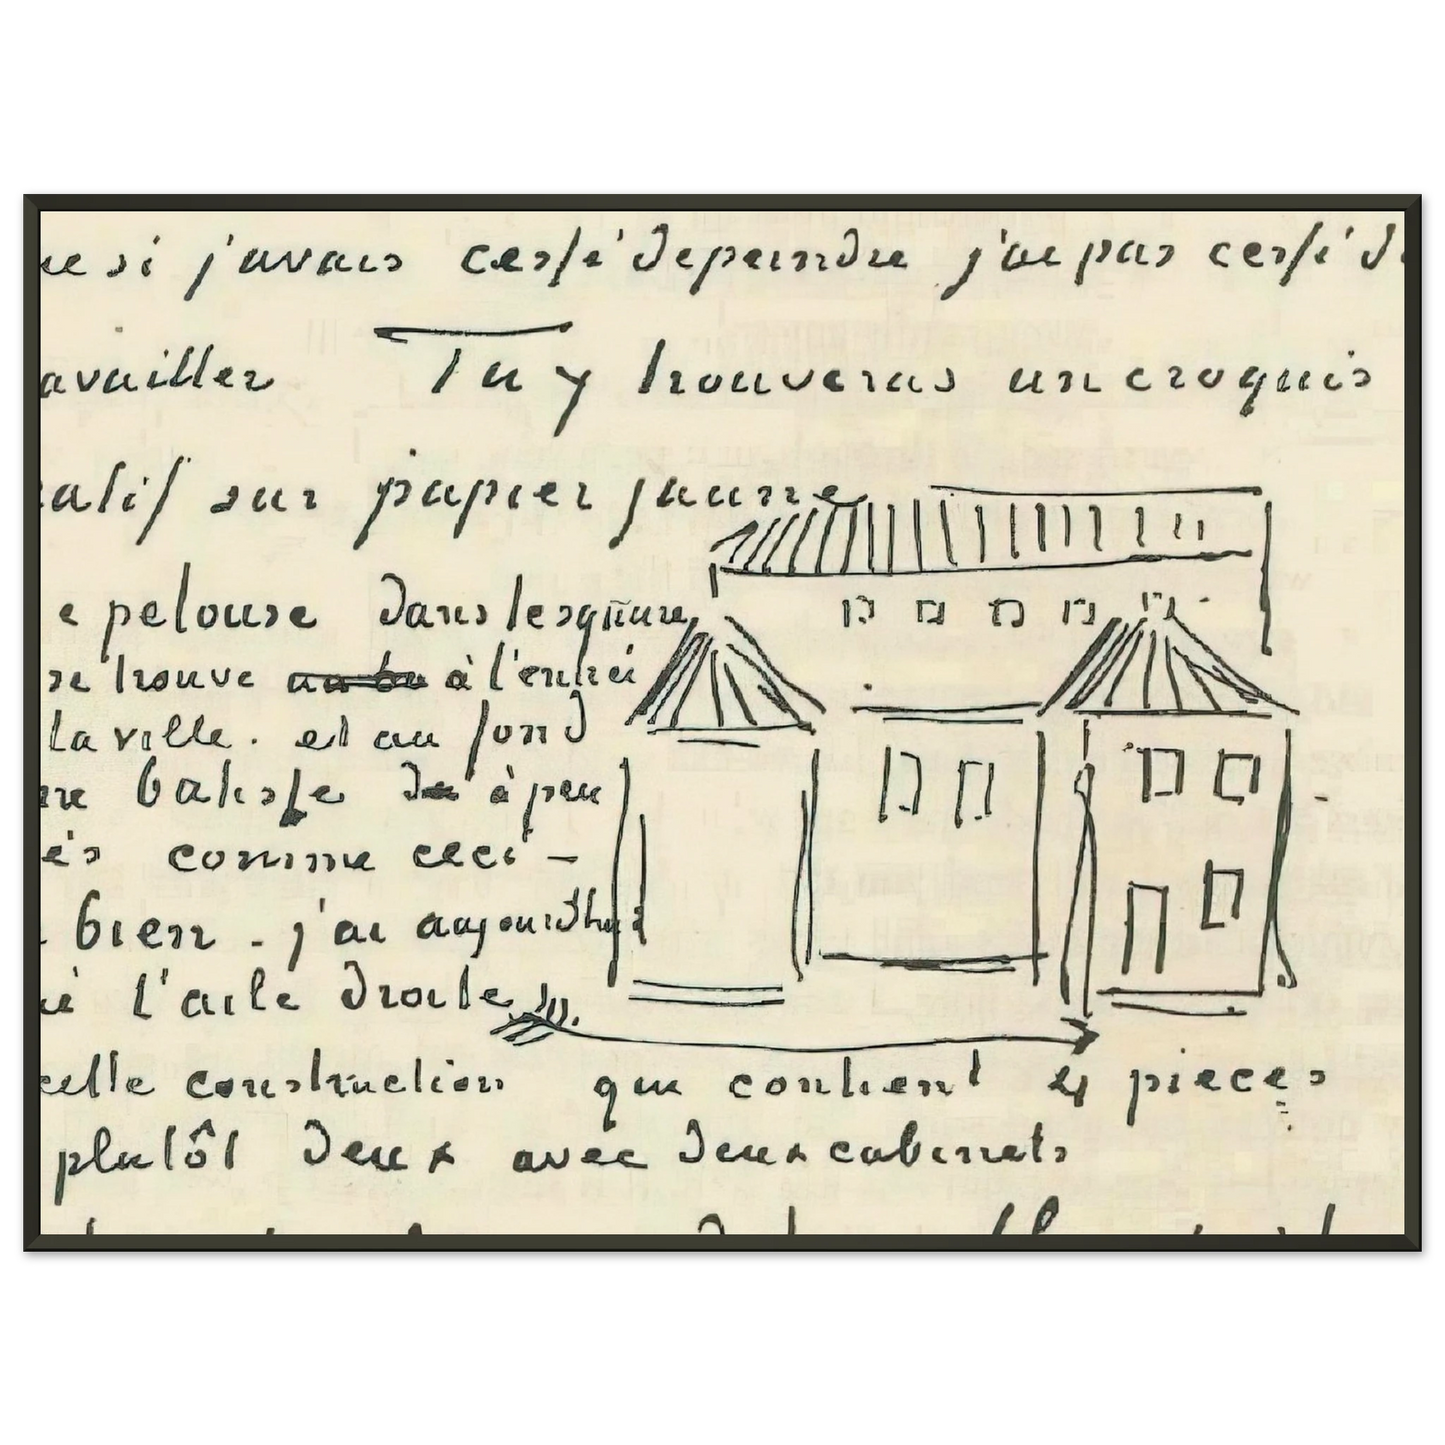 ue si j'avais cessé de peindre j'ai pas cessé d
availler Tu y trouveras un croquis
ratif sur papier jaune
e pelouse dans le square
se trouve à l'entrée
la ville. et au fond
ne batisse de à peu
ès comme ceci –
. bien - j'ai aujourdhui
é l'aile droite
cette construction qui contient 4 pieces
plutôt deux avec deux cabinets